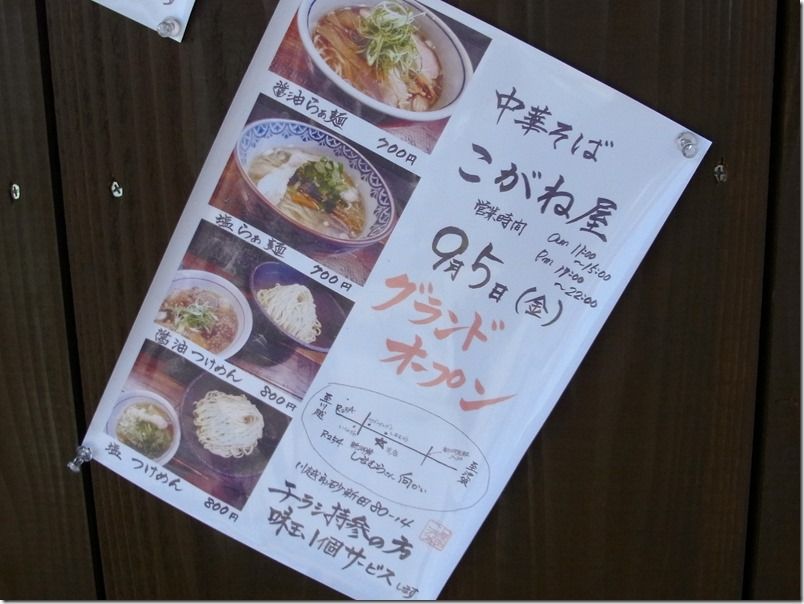 醤油らぁ麺
700円
塩らぁ麺
700円
醤油つけめん
800円
塩つけめん
800円
中華そば
こがね屋
営業時間
am 11:00
～15:00
Pm 17:00
～22:00
9月5日(金)
グランド
オープン
至川越
R254
至所沢
しまむらさん向かい
川越市砂新田80-14
チラシ持参の方
味玉1個サービスします